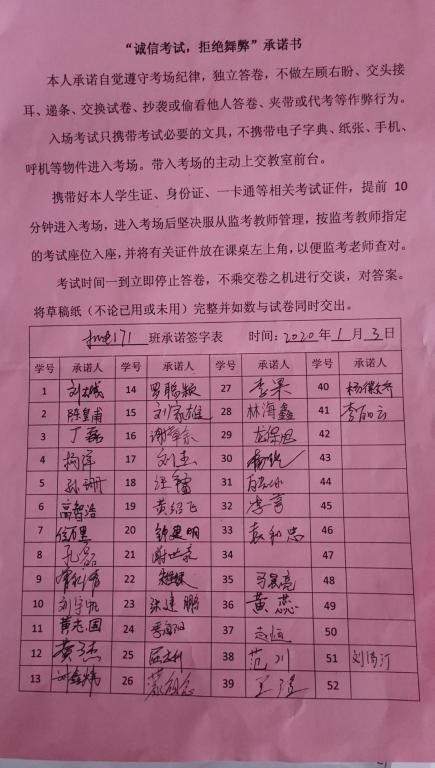 “诚信考试，拒绝舞弊”承诺书
本人承诺自觉遵守考场纪律，独立答卷，不做左顾右盼、交头接
耳、递条、交换试卷、抄袭或偷看他人答卷、夹带或代考等作弊行为。
入场考试只携带考试必要的文具，不携带电子字典、纸张、手机、
呼机等物件进入考场。带入考场的主动上交教室前台。
携带好本人学生证、身份证、一卡通等相关考试证件，提前 10
分钟进入考场，进入考场后坚决服从监考教师管理，按监考教师指定
的考试座位入座，并将有关证件放在课桌左上角，以便监考老师查对。
考试时间一到立即停止答卷，不乘交卷之机进行交谈，对答案。
将草稿纸（不论已用或未用）完整并如数与试卷同时交出。
171 班承诺签字表 时间：2020年1月3日
学号 承诺人 学号 承诺人 学号 承诺人 学号 承诺人
1 14 罗聪颖 27 李果 40
2 陈皇甫 15 刘家雄 28 林海鑫 41 李白云
3 丁磊 16 29 42
4 17 刘志 30 43
5 孙珊 18 31 44
6 高智浩 19 黄绍飞 32 李享 45
7 20 钟建明 33 袁和忠 46
8 孔磊 21 34 47
9 22 35 马晨亮 48
10 刘宇航 23 张建鹏 36 黄蕊 49
11 黄志国 24 37 赵恒 50
12 黄杰 25 38 范川 51
13 26 39 52